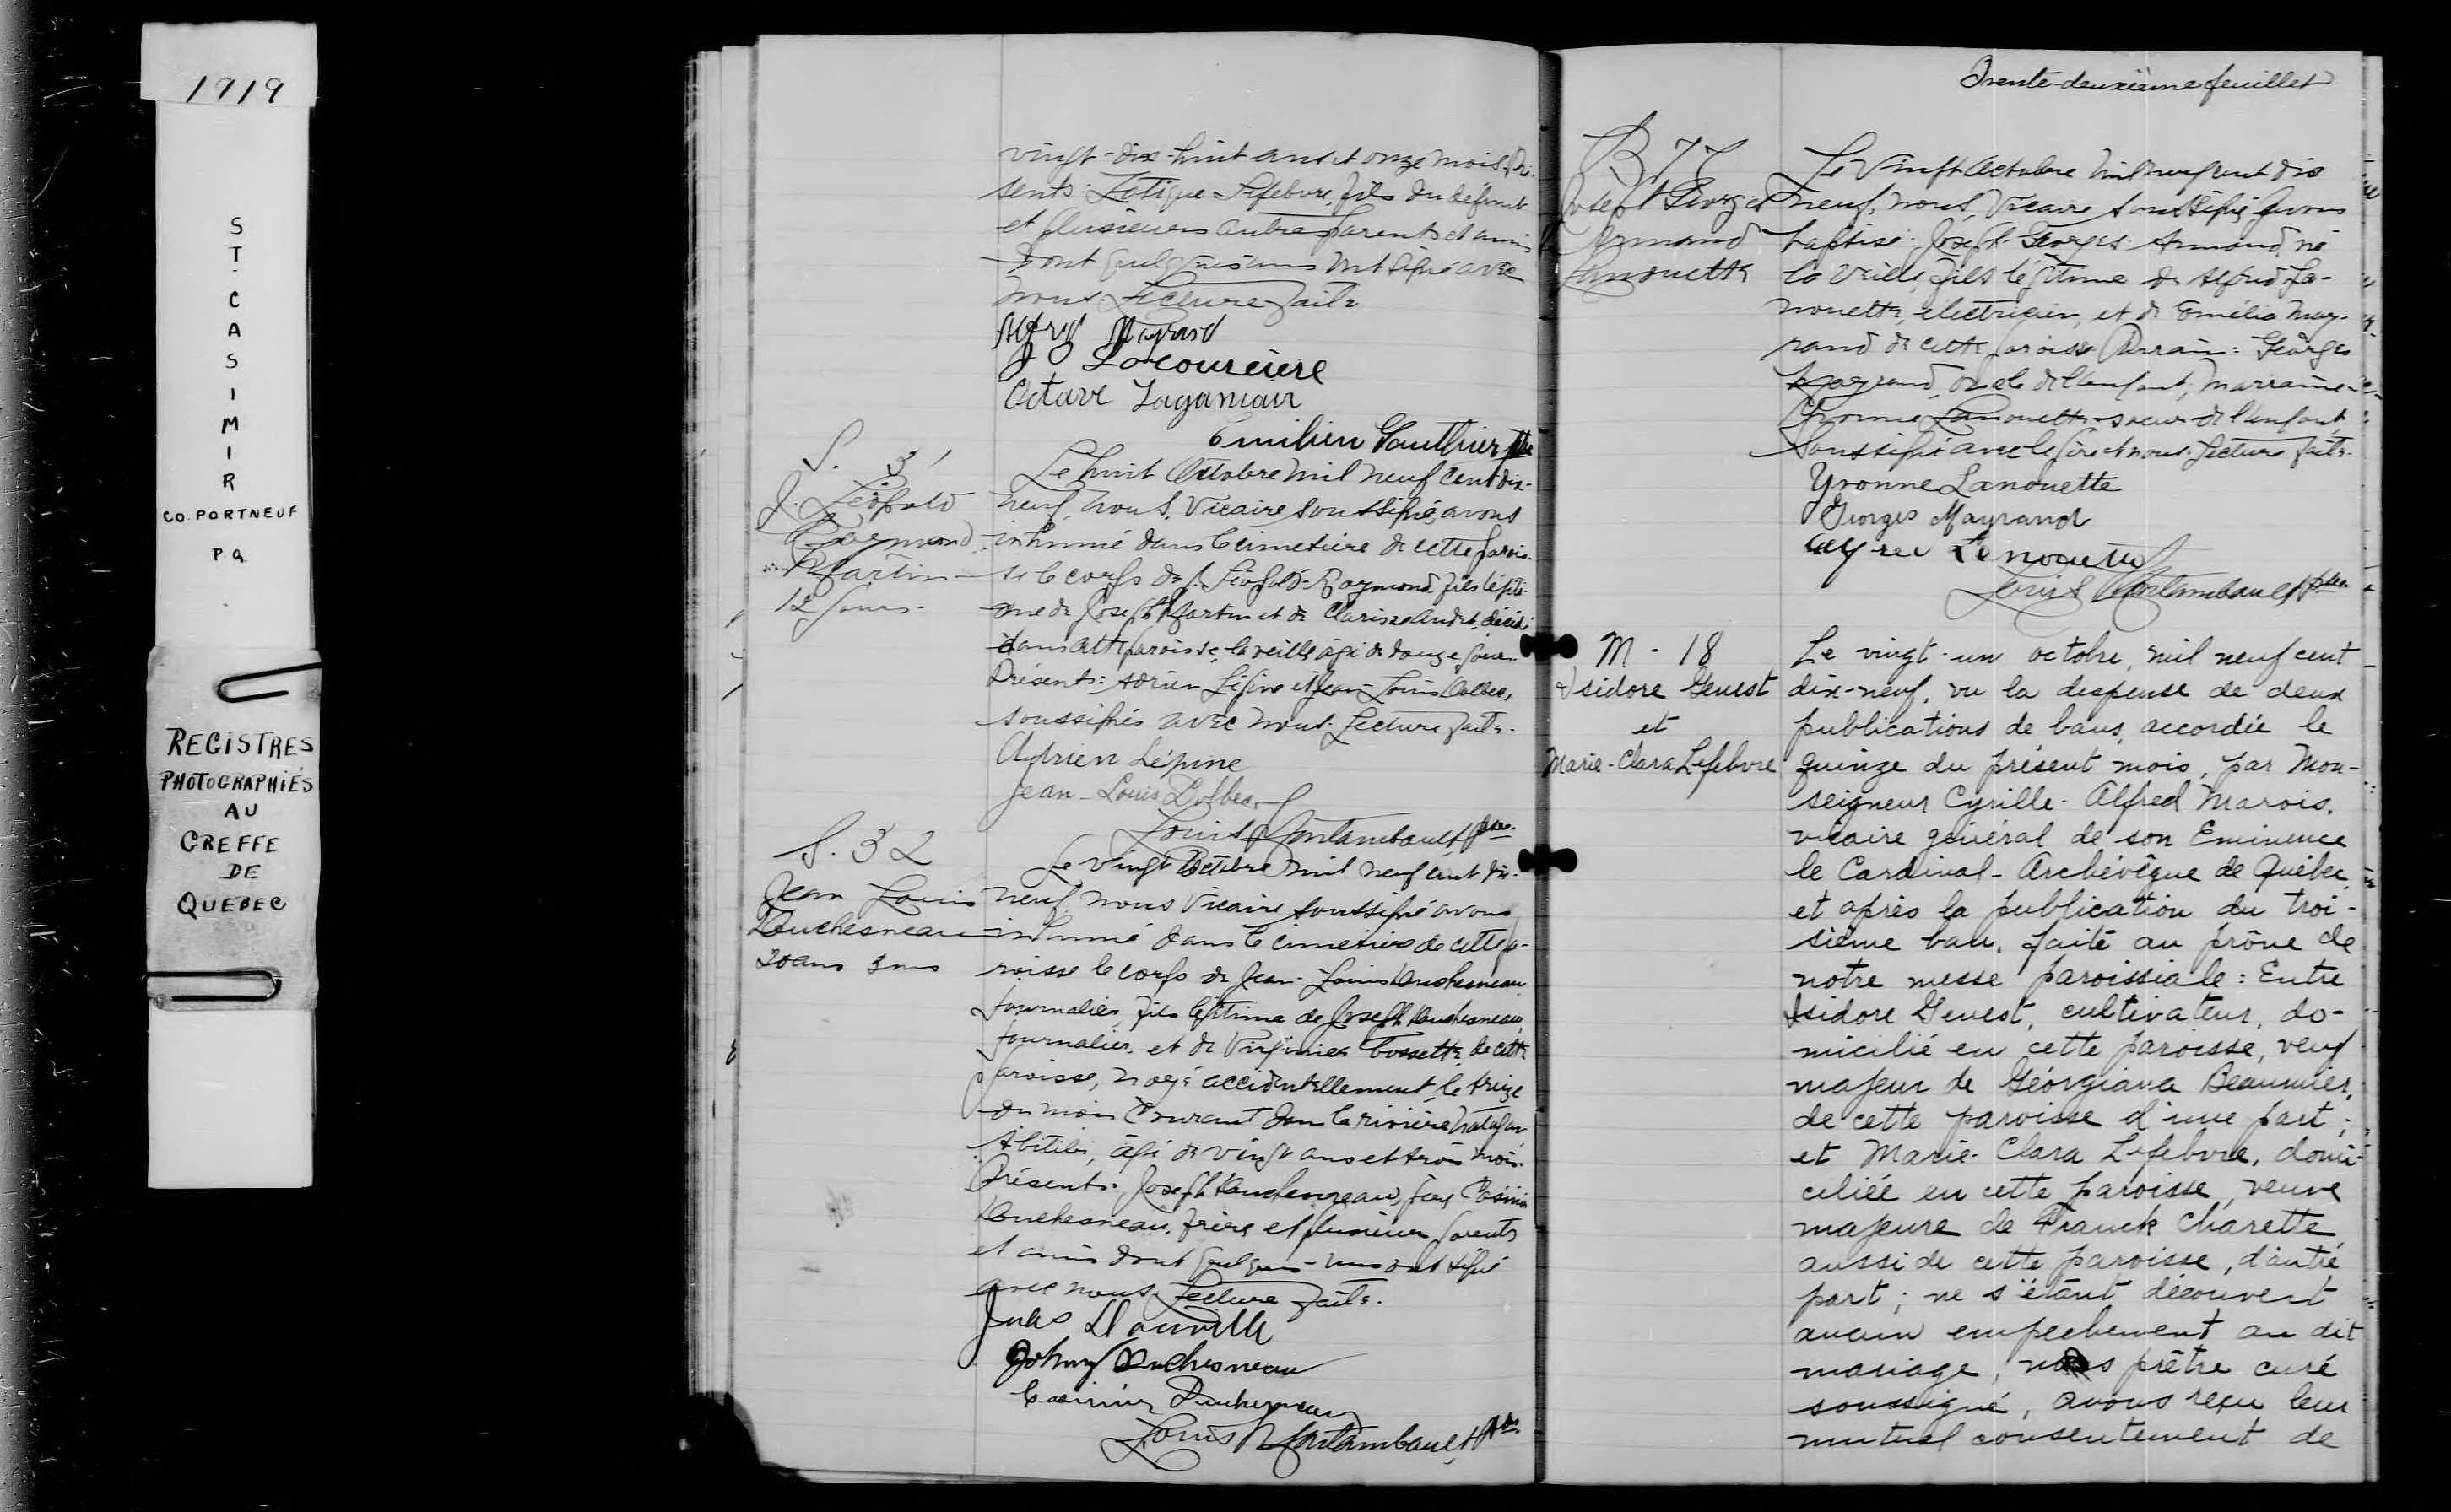 1919
ST. CASIMIR
CO. PORTNEUF
P.Q.
REGISTRES
PHOTOGRAPHIÉS
AU
GREFFE
DE
QUEBEC
vingt-dix-huit ans et onze mois. Pré-
sents: Zotique Lefebvre, fils du défunt
et plusieurs autres parents et amis
dont quelques-uns ont signé avec
nous. Lecture faite
Mayrand
Lacourcière
Octave
Emilien Gauthier ptre
S. 31
J. Léopold
Raymond
Martin
12 jours
Le huit Octobre mil neuf cent dix-
neuf, nous, Vicaire soussigné, avons
inhumé dans le cimetière de cette parois-
se le corps de J. Léopold-Raymond, fils légiti-
me de Joseph Martin et de Clarisse Audet, décédé
dans cette paroisse, la veille, âgé de douze jours.
Présents: Adrien Lépine et Jean-Louis Dolbec,
soussignés avec nous. Lecture faite.
Adrien Lépine
Jean-Louis Dolbec
Louis Fontambault, ptre
S. 32
Jean Louis
Duchesneau
20 ans 3 ms
Le vingt Octobre mil neuf cent dix-
neuf, nous Vicaire soussigné avons
inhumé dans le cimetière de cette pa-
roisse le corps de Jean-Louis Duchesneau
journalier, fils légitime de Joseph Duchesneau,
journalier, et de Virginie Cossette, de cette
paroisse, noyé accidentellement, le treize
du mois courant dans la rivière
Abitibi, âgé de vingt ans et trois mois.
Présents: Joseph Duchesneau, père, Casimir
Duchesneau, frère, et plusieurs parents
et amis dont quelques-uns ont signé
avec nous. Lecture faite.
Jules Douville
Johny Duchesneau
Casimir Duchesneau
Louis Fontambault, ptre
Trente-deuxième feuillet
B 77
Joseph Georges
Armand
Lanouette
Le vingt Octobre mil neuf cent dix
neuf, nous, Vicaire soussigné avons
baptisé Joseph-Georges-Armand, né
la veille, fils légitime de Alfred La-
nouette, électricien, et de Emélia May-
rand de cette paroisse. Parrain: Georges
Mayrand, oncle de l'enfant, marraine
Yvonne Lanouette soeur de l'enfant,
soussignés avec le père et nous. Lecture faite.
Yvonne Lanouette
Georges Mayrand
Alfred Lanouette
Louis Fontambault, ptre
M - 18
Isidore Genest
et
Marie-Clara Lefebvre
Le vingt-un octobre, mil neuf cent
dix-neuf, vu la dispense de deux
publications de bans, accordée le
quinze du présent mois, par Mon-
seigneur Cyrille-Alfred Marois,
vicaire général de son Eminence
le Cardinal-Archévêque de Québec,
et après la publication du troi-
sième ban, faite au prône de
notre messe paroissiale: Entre
Isidore Genest, cultivateur, do-
micilié en cette paroisse, veuf
majeur de Géorgiana Beaumier,
de cette paroisse d'une part;
et Marie-Clara Lefebvre, domi-
ciliée en cette paroisse, veuve
majeure de Franck Charette,
aussi de cette paroisse, d'autre
part; ne s'étant découvert
aucun empêchement au dit
mariage, nous prêtre curé
soussigné, avons reçu leur
mutuel consentement de